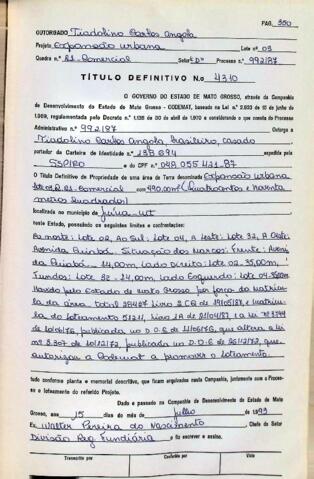 PAG. 350
OUTORGADO Tiadolino Carlos Angola
Projeto Expansão urbana Lote nº 03
Quadra n.º R1-Comercial Setor "D" Processo n.º 992/87
TÍTULO DEFINITIVO N.º 4310
O GOVERNO DO ESTADO DE MATO GROSSO, através da Companhia
de Desenvolvimento do Estado de Mato Grosso - CODEMAT, baseado na Lei n.º
regulamentada pelo Decreto n.º 1.138 de 30 de abril de 1970 e considerando o que consta do Processo
Administrativo n.º 992/87 Outorga a
Tiadolino Carlos Angola, brasileiro, casado
portador da Carteira de Identidade n.º 13B 694 expedida pela
SSP/RO e do CPF n.º 048.055.421-87
O Título Definitivo de Propriedade de uma área de Terra denominada Expansão urbana
Lote 03 R1-Comercial com 490,00m² (Quatrocentos e noventa
metros Quadrados)
localizada no município de Juína-MT
neste Estado, possuindo os seguintes limites e confrontações:
Ao norte: Lote 02, Ao Sul: Lote 04, A Leste: Lote 32, A Oeste:
Avenida Cuiabá. Situação dos marcos: Frente: Aveni-
da Cuiabá 14,00m, Lado Direito: Lote 02-35,00m,
Fundos: Lote 32-14,00m, Lado Esquerdo: Lote 04-35,00m
Havido pelo Estado de Mato Grosso por força da matrícu-
la da área, total 28427 Livro 2 CQ de 19/05/81 e matrícu-
la do Loteamento 51211, Livro 2A de 21/04/87, e a Lei nº 3744
de 10/06/76, publicada no D.O.E de 11/06/76, que altera a Lei
nº 3.307 de 10/12/72, publicada no D.O.E de 26/12/72, que
autorizou a Codemat a promover o Loteamento.
tudo conforme planta e memorial descritivo, que ficam arquivados nesta Companhia, juntamente com o Proces-
so e loteamento do referido Projeto.
Dado e passado na Companhia de Desenvolvimento do Estado de Mato
Grosso, aos 15 dias do mês de julho de 1993
Eu Walter Pereira do Nascimento Chefe do Setor
Divisão Reg. Fundiária o fiz escrever e assino.
Transcrito por Conferido por Visto